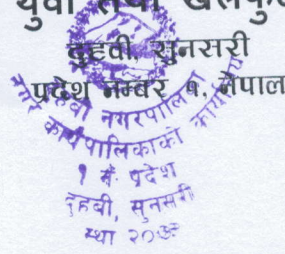 युवा तथा खेलकुद
दुहवी, सुनसरी
प्रदेश नम्बर १, नेपाल
दुहवी नगरपालिका
नगर कार्यपालिकाको कार्यालय
१ नं. प्रदेश
दुहबी, सुनसरी